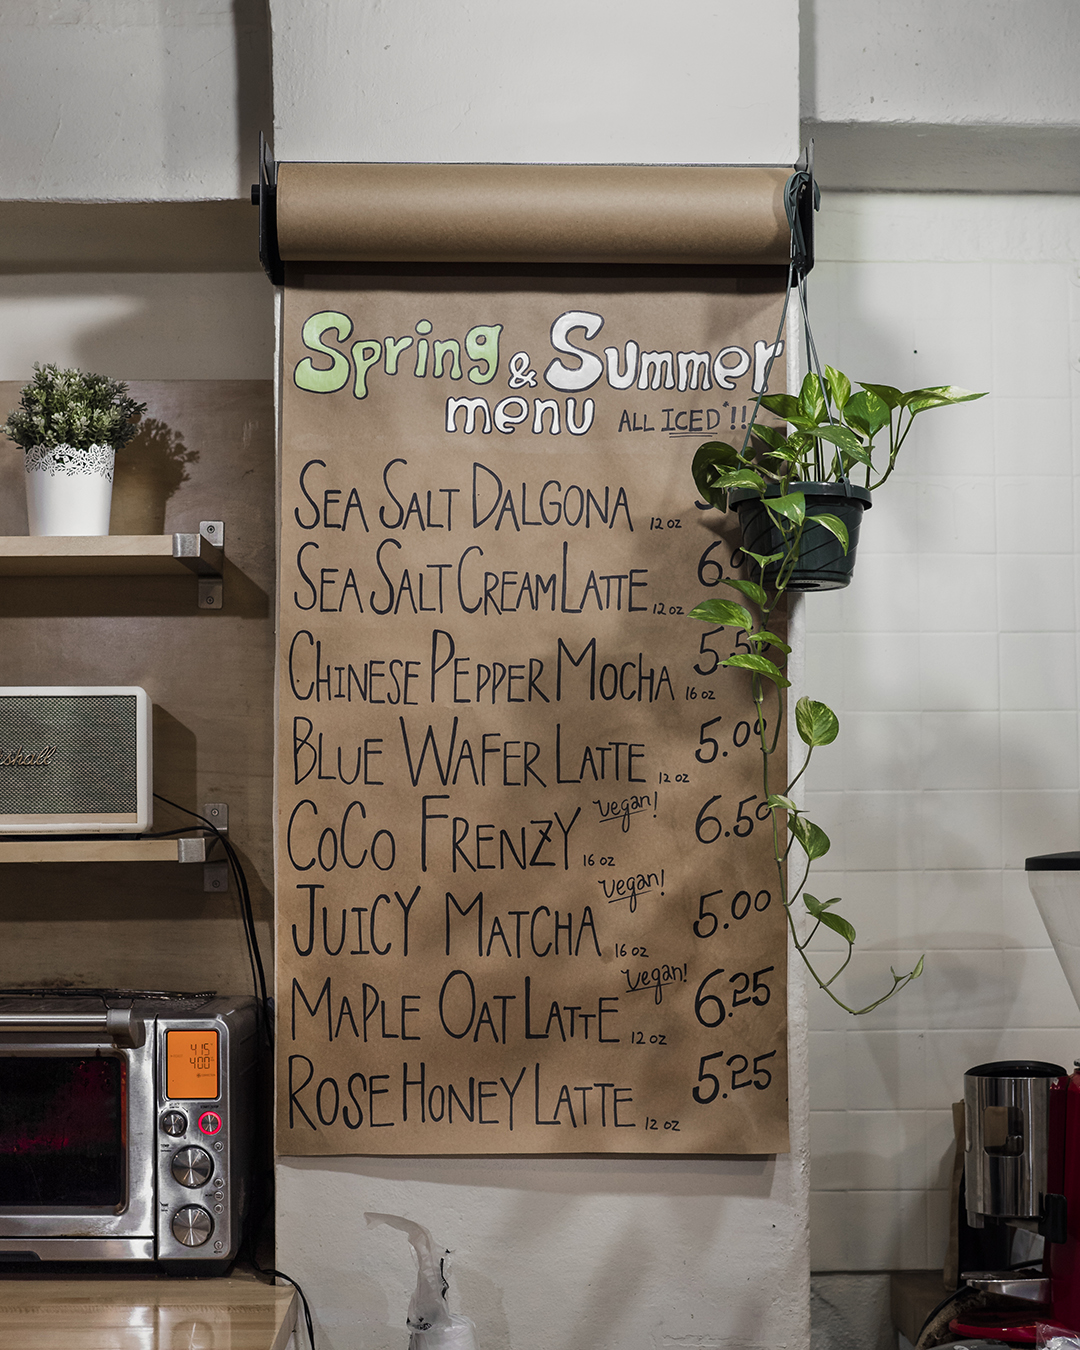 Spring & Summer
menu ALL ICED*!!
SEA SALT DALGONA 12 OZ
SEA SALT CREAM LATTE 12 OZ
CHINESE PEPPER MOCHA 16 OZ 5.5
BLUE WAFER LATTE 12 OZ 5.00
COCO FRENZY vegan! 16 OZ 6.50
JUICY MATCHA vegan! 16 OZ 5.00
MAPLE OAT LATTE vegan! 12 OZ 6.25
ROSE HONEY LATTE 12 OZ 5.25
415
400°